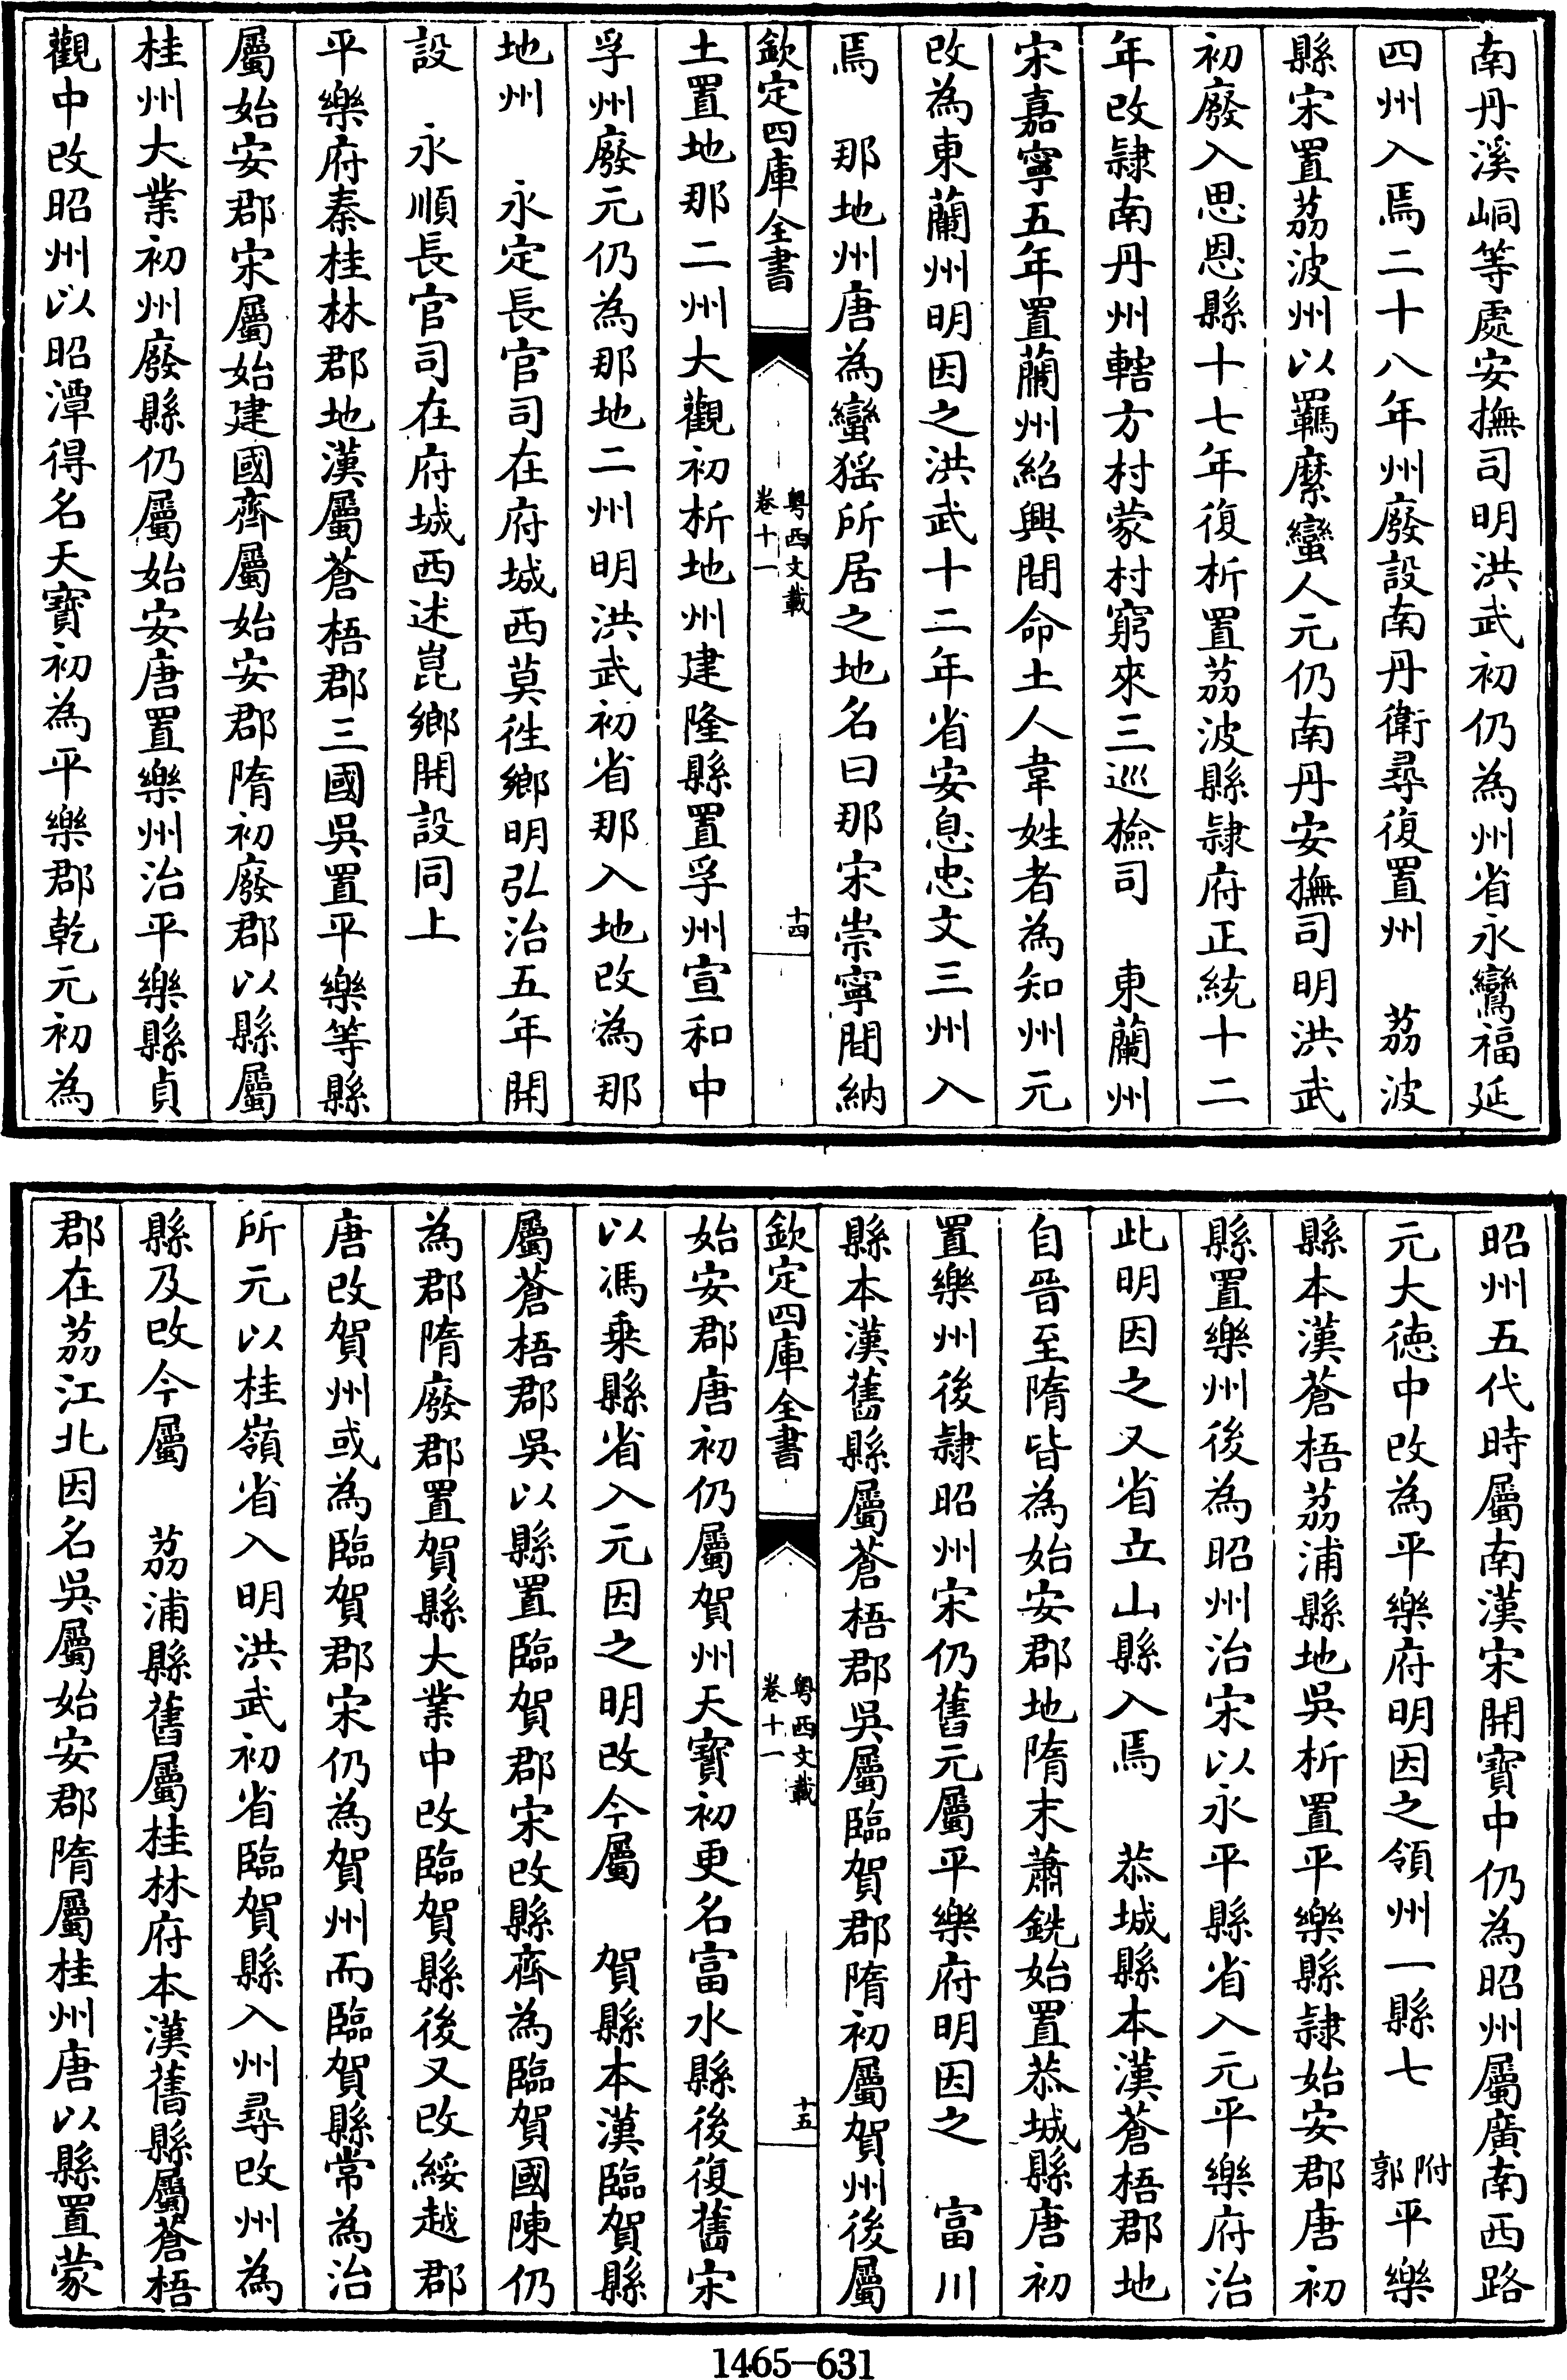 南丹溪峒等處安撫司明洪武初仍為州省永鸞福延
四州入焉二十八年州廢設南丹衛尋復置州　荔波
縣宋置荔波州以羈縻蠻人元仍南丹安撫司明洪武
初廢入思恩縣十七年復析置荔波縣隸府正統十二
年改隸南丹州轄方村蒙村窮來三巡檢司　東蘭州
宋嘉寧五年置蘭州紹興間命土人韋姓者為知州元
改為東蘭州明因之洪武十二年省安息忠文三州入
焉　那地州唐為蠻猺所居之地名曰那宋崇寧間納
欽定四庫全書
粤西文載
卷十一
十四
土置地那二州大觀初析地州建隆縣置孚州宣和中
孚州廢元仍為那地二州明洪武初省那入地改為那
地州　永定長官司在府城西莫往鄉明弘治五年開
設　永順長官司在府城西述崑鄉開設同上
平樂府秦桂林郡地漢屬蒼梧郡三國吳置平樂等縣
屬始安郡宋屬始建國齊屬始安郡隋初廢郡以縣屬
桂州大業初州廢縣仍屬始安唐置樂州治平樂縣貞
觀中改昭州以昭潭得名天寶初為平樂郡乾元初為
昭州五代時屬南漢宋開寶中仍為昭州屬廣南西路
元大徳中改為平樂府明因之領州一縣七　附郭平樂
縣本漢蒼梧荔浦縣地吳析置平樂縣隸始安郡唐初
縣置樂州後為昭州治宋以永平縣省入元平樂府治
此明因之又省立山縣入焉　恭城縣本漢蒼梧郡地
自晉至隋皆為始安郡地隋末蕭銑始置恭城縣唐初
置樂州後隸昭州宋仍舊元屬平樂府明因之　富川
縣本漢舊縣屬蒼梧郡吳屬臨賀郡隋初屬賀州後屬
欽定四庫全書
粤西文載
卷十一
十五
始安郡唐初仍屬賀州天寶初更名富水縣後復舊宋
以馮乗縣省入元因之明改今屬　賀縣本漢臨賀縣
屬蒼梧郡吳以縣置臨賀郡宋改縣齊為臨賀國陳仍
為郡隋廢郡置賀縣大業中改臨賀縣後又改綏越郡
唐改賀州或為臨賀郡宋仍為賀州而臨賀縣常為治
所元以桂嶺省入明洪武初省臨賀縣入州尋改州為
縣及改今屬　荔浦縣舊屬桂林府本漢舊縣屬蒼梧
郡在荔江北因名吳屬始安郡隋屬桂州唐以縣置蒙
1465-631